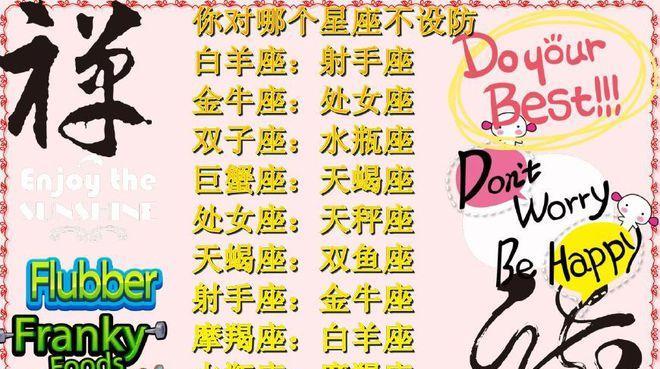 禅
Enjoy the
SUNSHINE
Flubber
Franky
Foods
你对哪个星座不设防
白羊座：射手座
金牛座：处女座
双子座：水瓶座
巨蟹座：天蝎座
处女座：天秤座
天蝎座：双鱼座
射手座：金牛座
摩羯座：白羊座
Do your
Best!!!
Don't
Worry
Be Happy